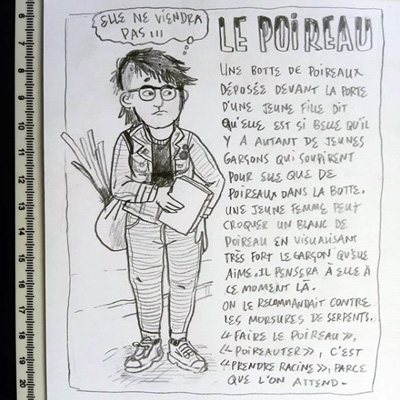 ELLE NE VIENDRA
PAS !!!
LE POIREAU
UNE BOTTE DE POIREAUX
DÉPOSÉE DEVANT LA PORTE
D'UNE JEUNE FILLE DIT
QU'ELLE EST SI BELLE QU'IL
Y A AUTANT DE JEUNES
GARÇONS QUI SOUPIRENT
POUR ELLE QUE DE
POIREAUX DANS LA BOTTE.
UNE JEUNE FEMME PEUT
CROQUER UN BLANC DE
POIREAU EN VISUALISANT
TRÈS FORT LE GARÇON QU'ELLE
AIME. IL PENSERA À ELLE À
CE MOMENT LÀ.
ON LE RECOMMANDAIT CONTRE
LES MORSURES DE SERPENTS.
«FAIRE LE POIREAU»,
«POIREAUTER», C'EST
«PRENDRE RACINE», PARCE
QUE L'ON ATTEND-
6
7
8
9
10
11
12
13
14
15
16
17
18
19
20